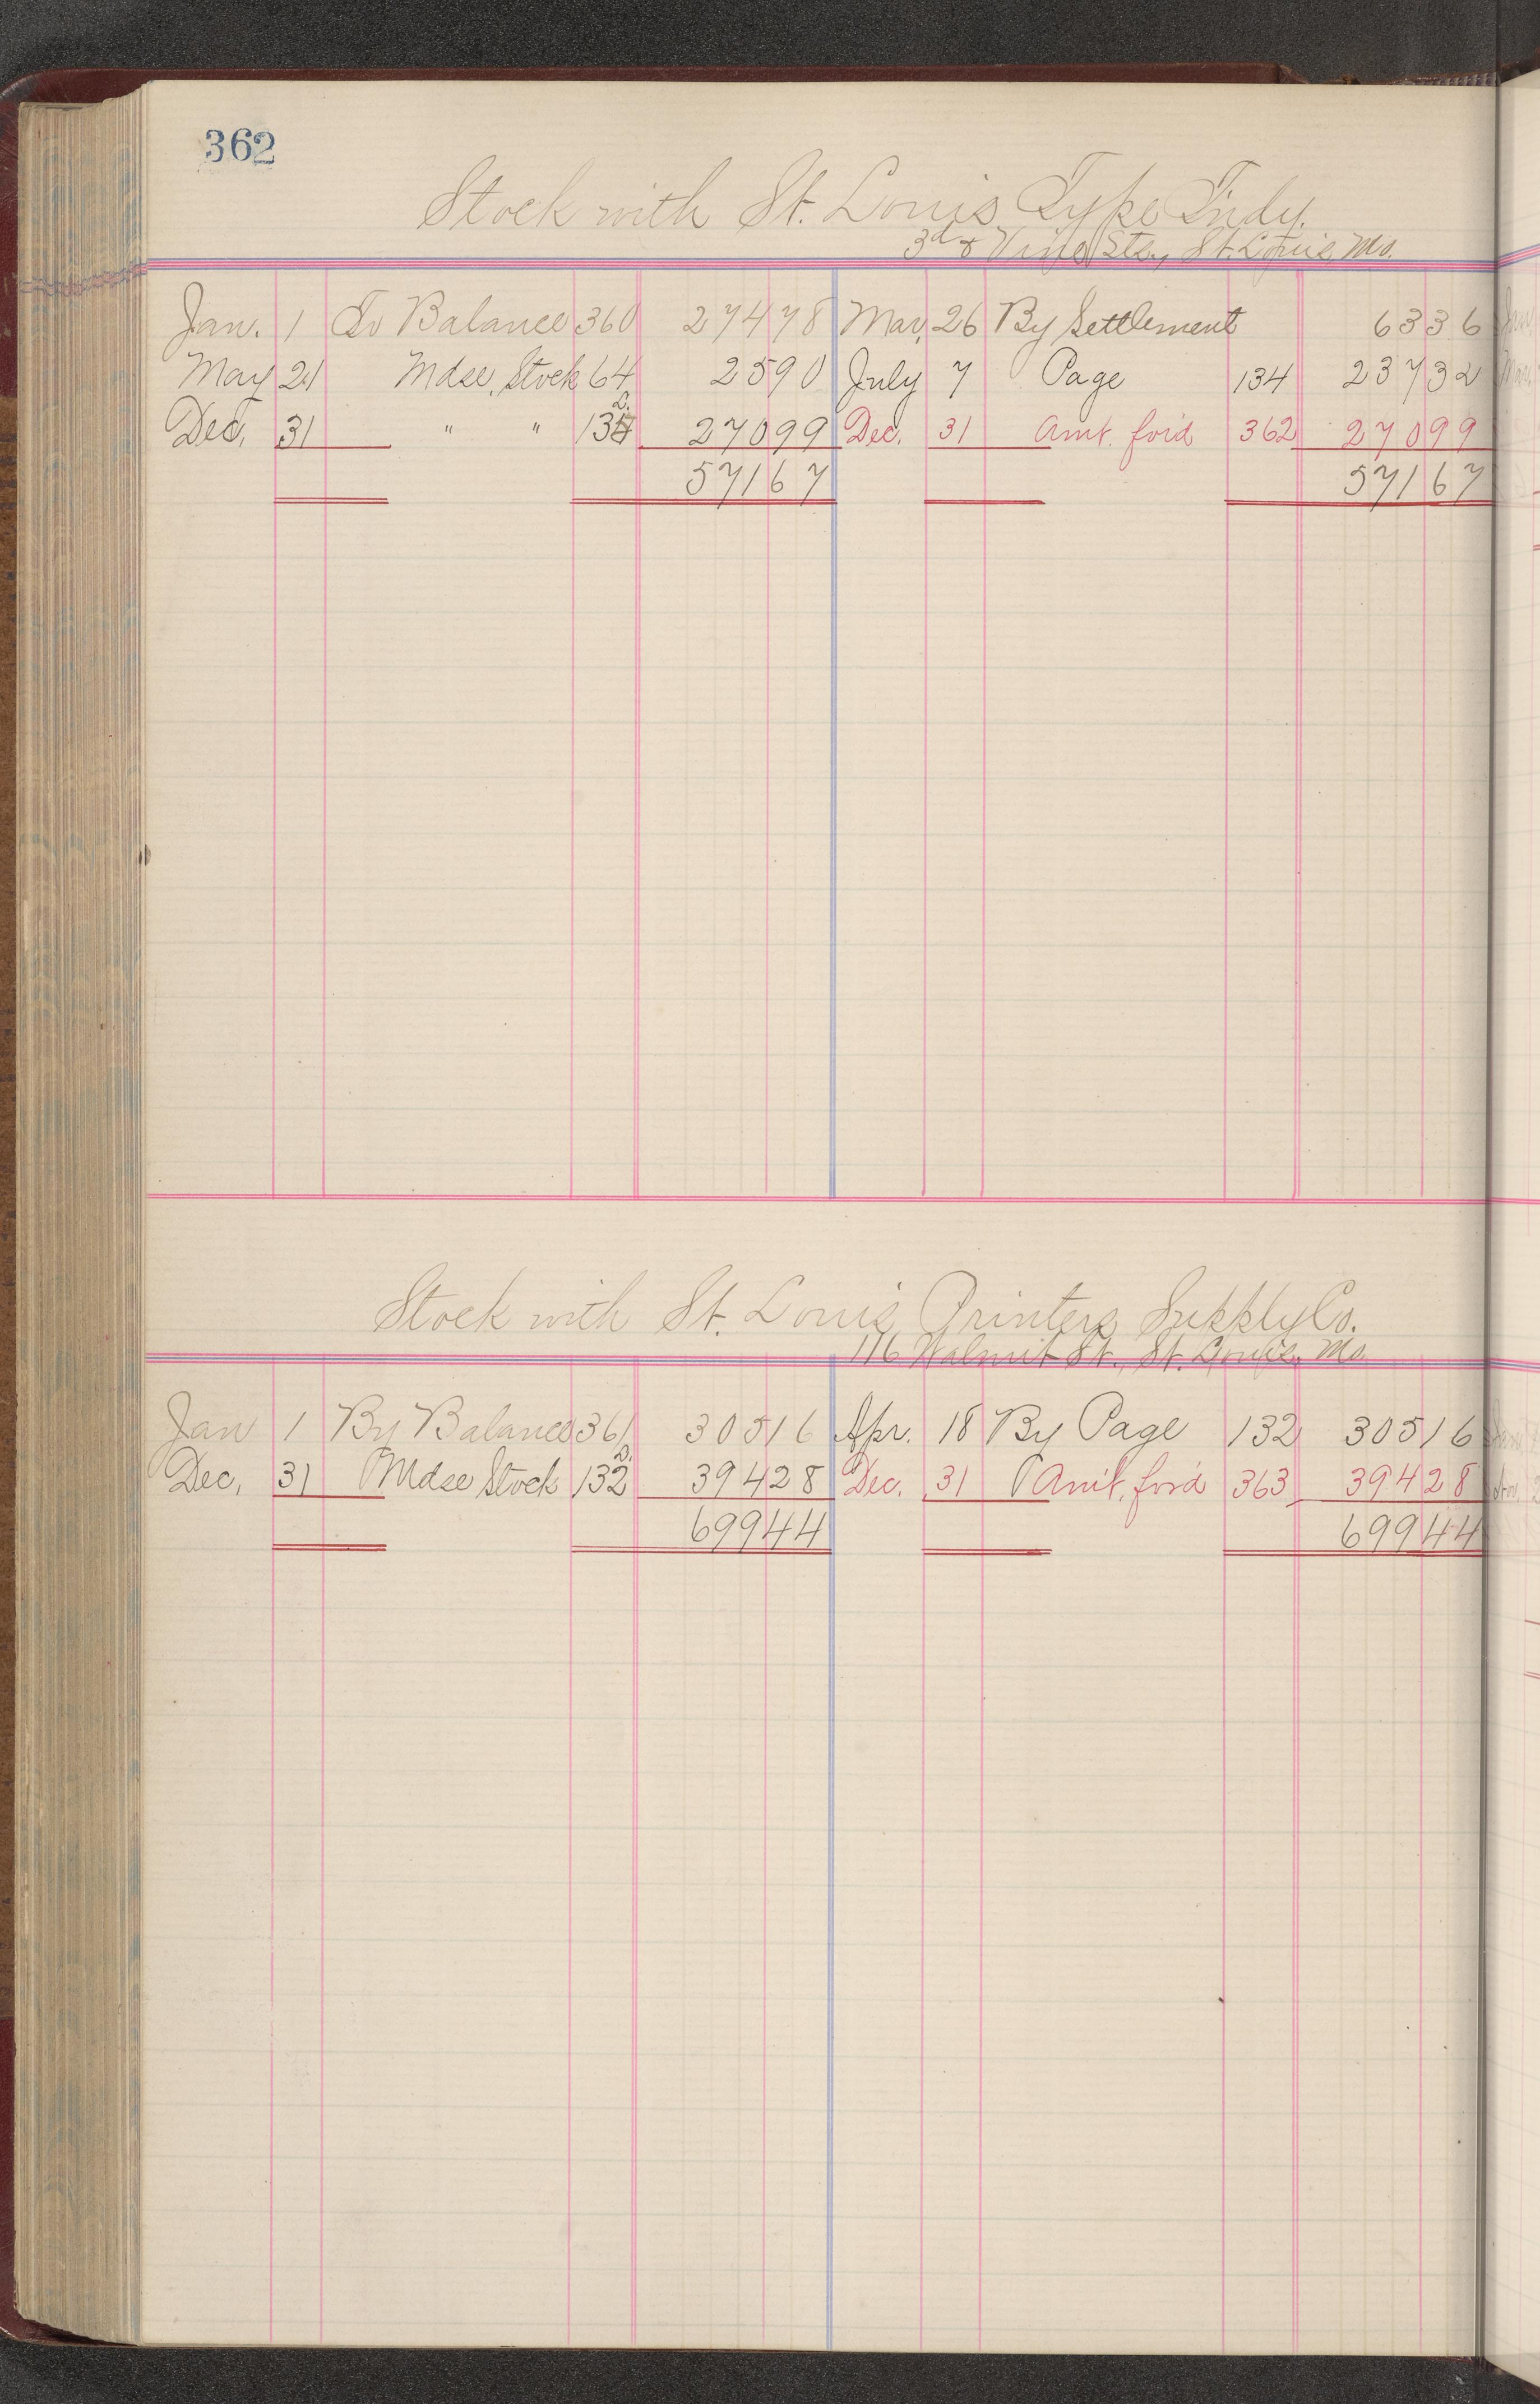 362
Stock with St. Louis Type Fndy.
3d & Vine Sts., St. Louis, Mo.
Jan. 1 To Balance 360 27478 Mar. 26 By Settlement 6336
May 21 Mdse. Stock 64 2590 July 7 Page 134 23732
Dec. 31 " " 132 27099 Dec. 31 Amt. for'd 362 27099
57167 57167
Stock with St. Louis Printers Supply Co.
116 Walnut St., St. Louis, Mo.
Jan 1 By Balance 361 30516 Apr. 18 By Page 132 30516
Dec, 31 Mdse Stock 132 39428 Dec. 31 Amt. for'd 363 39428
69944 69944